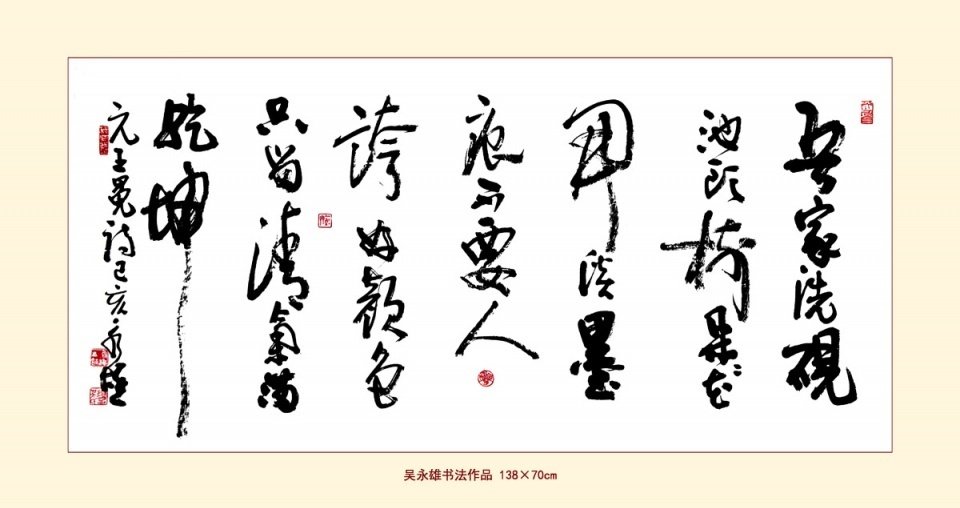 吾家洗硯
池頭樹朵朵花
開淡墨
痕不要人
誇好顏色
只留清氣滿
乾坤
元王冕詩己亥永雄
吴永雄书法作品 138×70cm